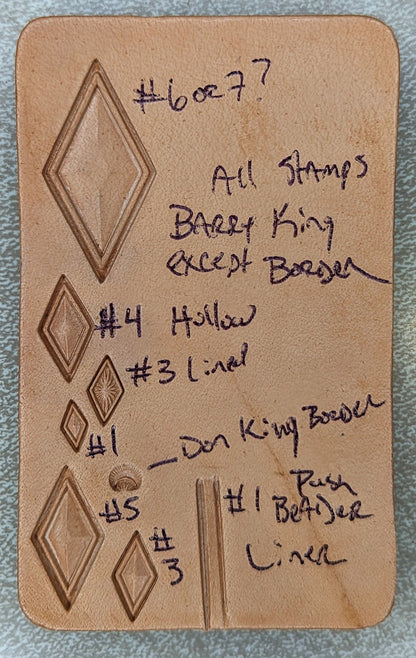 #6 or 7?
All Stamps
Barry King
except Border
#4 Hollow
#3 Lined
#1
Don King Border
#5
#3
#1 Push
Beader
Liner